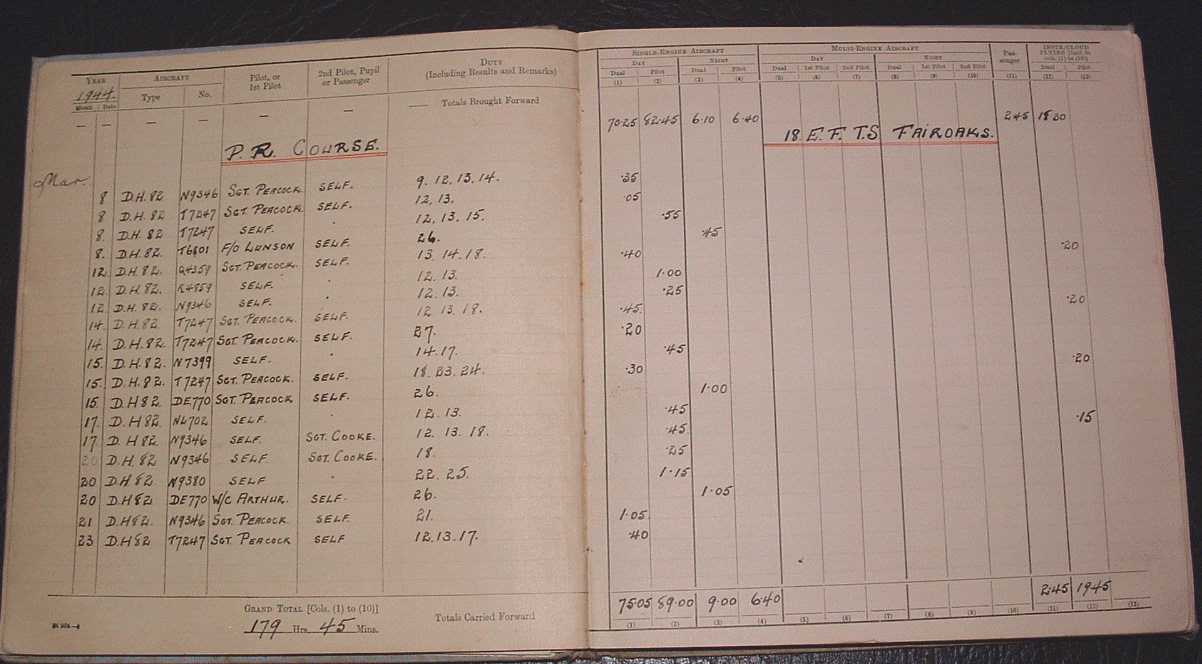 YEAR AIRCRAFT Pilot, or 1st Pilot 2nd Pilot, Pupil or Passenger DUTY (Including Results and Remarks)
1944. Type No.
Month Date
— — — — — — — Totals Brought Forward
P.R. COURSE.
Mar. 8 D.H.82 N9346 SGT. PEACOCK SELF. 9. 12. 13. 14.
8 D.H.82 T7247 SGT. PEACOCK. SELF. 12. 13.
8. D.H. 82 T7247 SELF. 12. 13. 15.
8. D.H.82. T6801 F/O LUNSON SELF. 26.
12. D.H.82. SGT. PEACOCK. SELF. 13. 14. 18.
12. D.H.82. SELF. 12. 13.
12 D.H.82. N9346 SELF. 12. 13.
14. D.H.82 T7247 SGT. PEACOCK. SELF. 12. 13. 18.
14. D.H.82. T7247 SGT. PEACOCK. SELF. B7.
15. D.H.82. N7399 SELF. 14. 17.
15. D.H.82. T7247 SGT. PEACOCK. SELF. 18. 23. 24.
15. D.H82 DE770 SGT. PEACOCK SELF. 26.
17. D.H 82. NL702 SELF. 12. 13.
17. D.H 82 N9346 SELF. SGT. COOKE. 12. 13. 18.
20 D.H.82 N9346 SELF. SGT. COOKE. 18.
20 D.H.82 N9380 SELF 22. 25.
20 D.H82 DE770 W/C ARTHUR. SELF. 26.
21 D.H82. N9346 SGT. PEACOCK. SELF. 21.
23 D.H82 T7247 SGT. PEACOCK SELF 12. 13. 17.
GRAND TOTAL [Cols. (1) to (10)]
179 Hrs. 45 Mins.
Totals Carried Forward
SINGLE-ENGINE AIRCRAFT MULTI-ENGINE AIRCRAFT Pas-senger
DAY NIGHT DAY NIGHT
Dual Pilot Dual Pilot Dual 1st Pilot 2nd Pilot Dual 1st Pilot 2nd Pilot Dual Pilot
(1) (2) (3) (4) (5) (6) (7) (8) (9) (10) (11) (12) (13)
70.25 82.45 6.10 6.40 2.45 18.30
18 E.F.T.S FAIROAKS.
.35
.05
.55
.45
.40 .20
1.00
.25
.45. .20
.20
.45
.30 .20
1.00
.45
.45 .15
.25
1.15
1.05
1.05.
.40
75.05 89.00 9.00 6.40 2.45 19.45
(1) (2) (3) (4) (5) (6) (7) (8) (9) (10) (11) (12) (13)